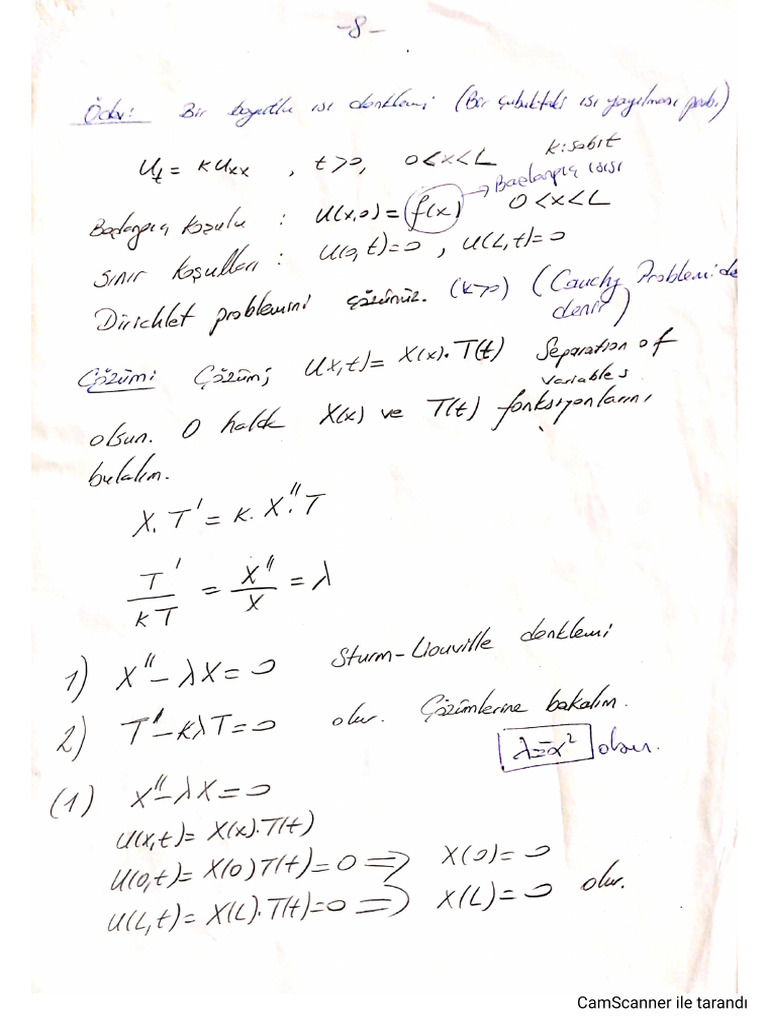 -8-
Ödev: Bir boyutlu ısı denklemi (Bir çubuktaki ısı yayılması prob.)
U_t = k U_xx , t>0, 0<x<L k: sabit
Başlangıç koşulu : U(x,0) = f(x) → Başlangıç ısısı 0<x<L
Sınır koşulları : U(0,t)=0 , U(L,t)=0
Dirichlet problemini çözünüz. (k>0) (Cauchy Problemi de denir)
Çözüm: Çözüm; U(x,t) = X(x).T(t) Separation of variables
olsun. O halde X(x) ve T(t) fonksiyonlarını
bulalım.
X.T' = k.X''.T
T'/kT = X''/X = λ
1) X'' - λX = 0 Sturm-Liouville denklemi
2) T' - kλT = 0 olur. Çözümlerine bakalım.
λ=-α² olsun.
(1) X'' - λX = 0
U(x,t) = X(x).T(t)
U(0,t) = X(0)T(t) = 0 ⇒ X(0) = 0
U(L,t) = X(L).T(t) = 0 ⇒ X(L) = 0 olur.
CamScanner ile tarandı